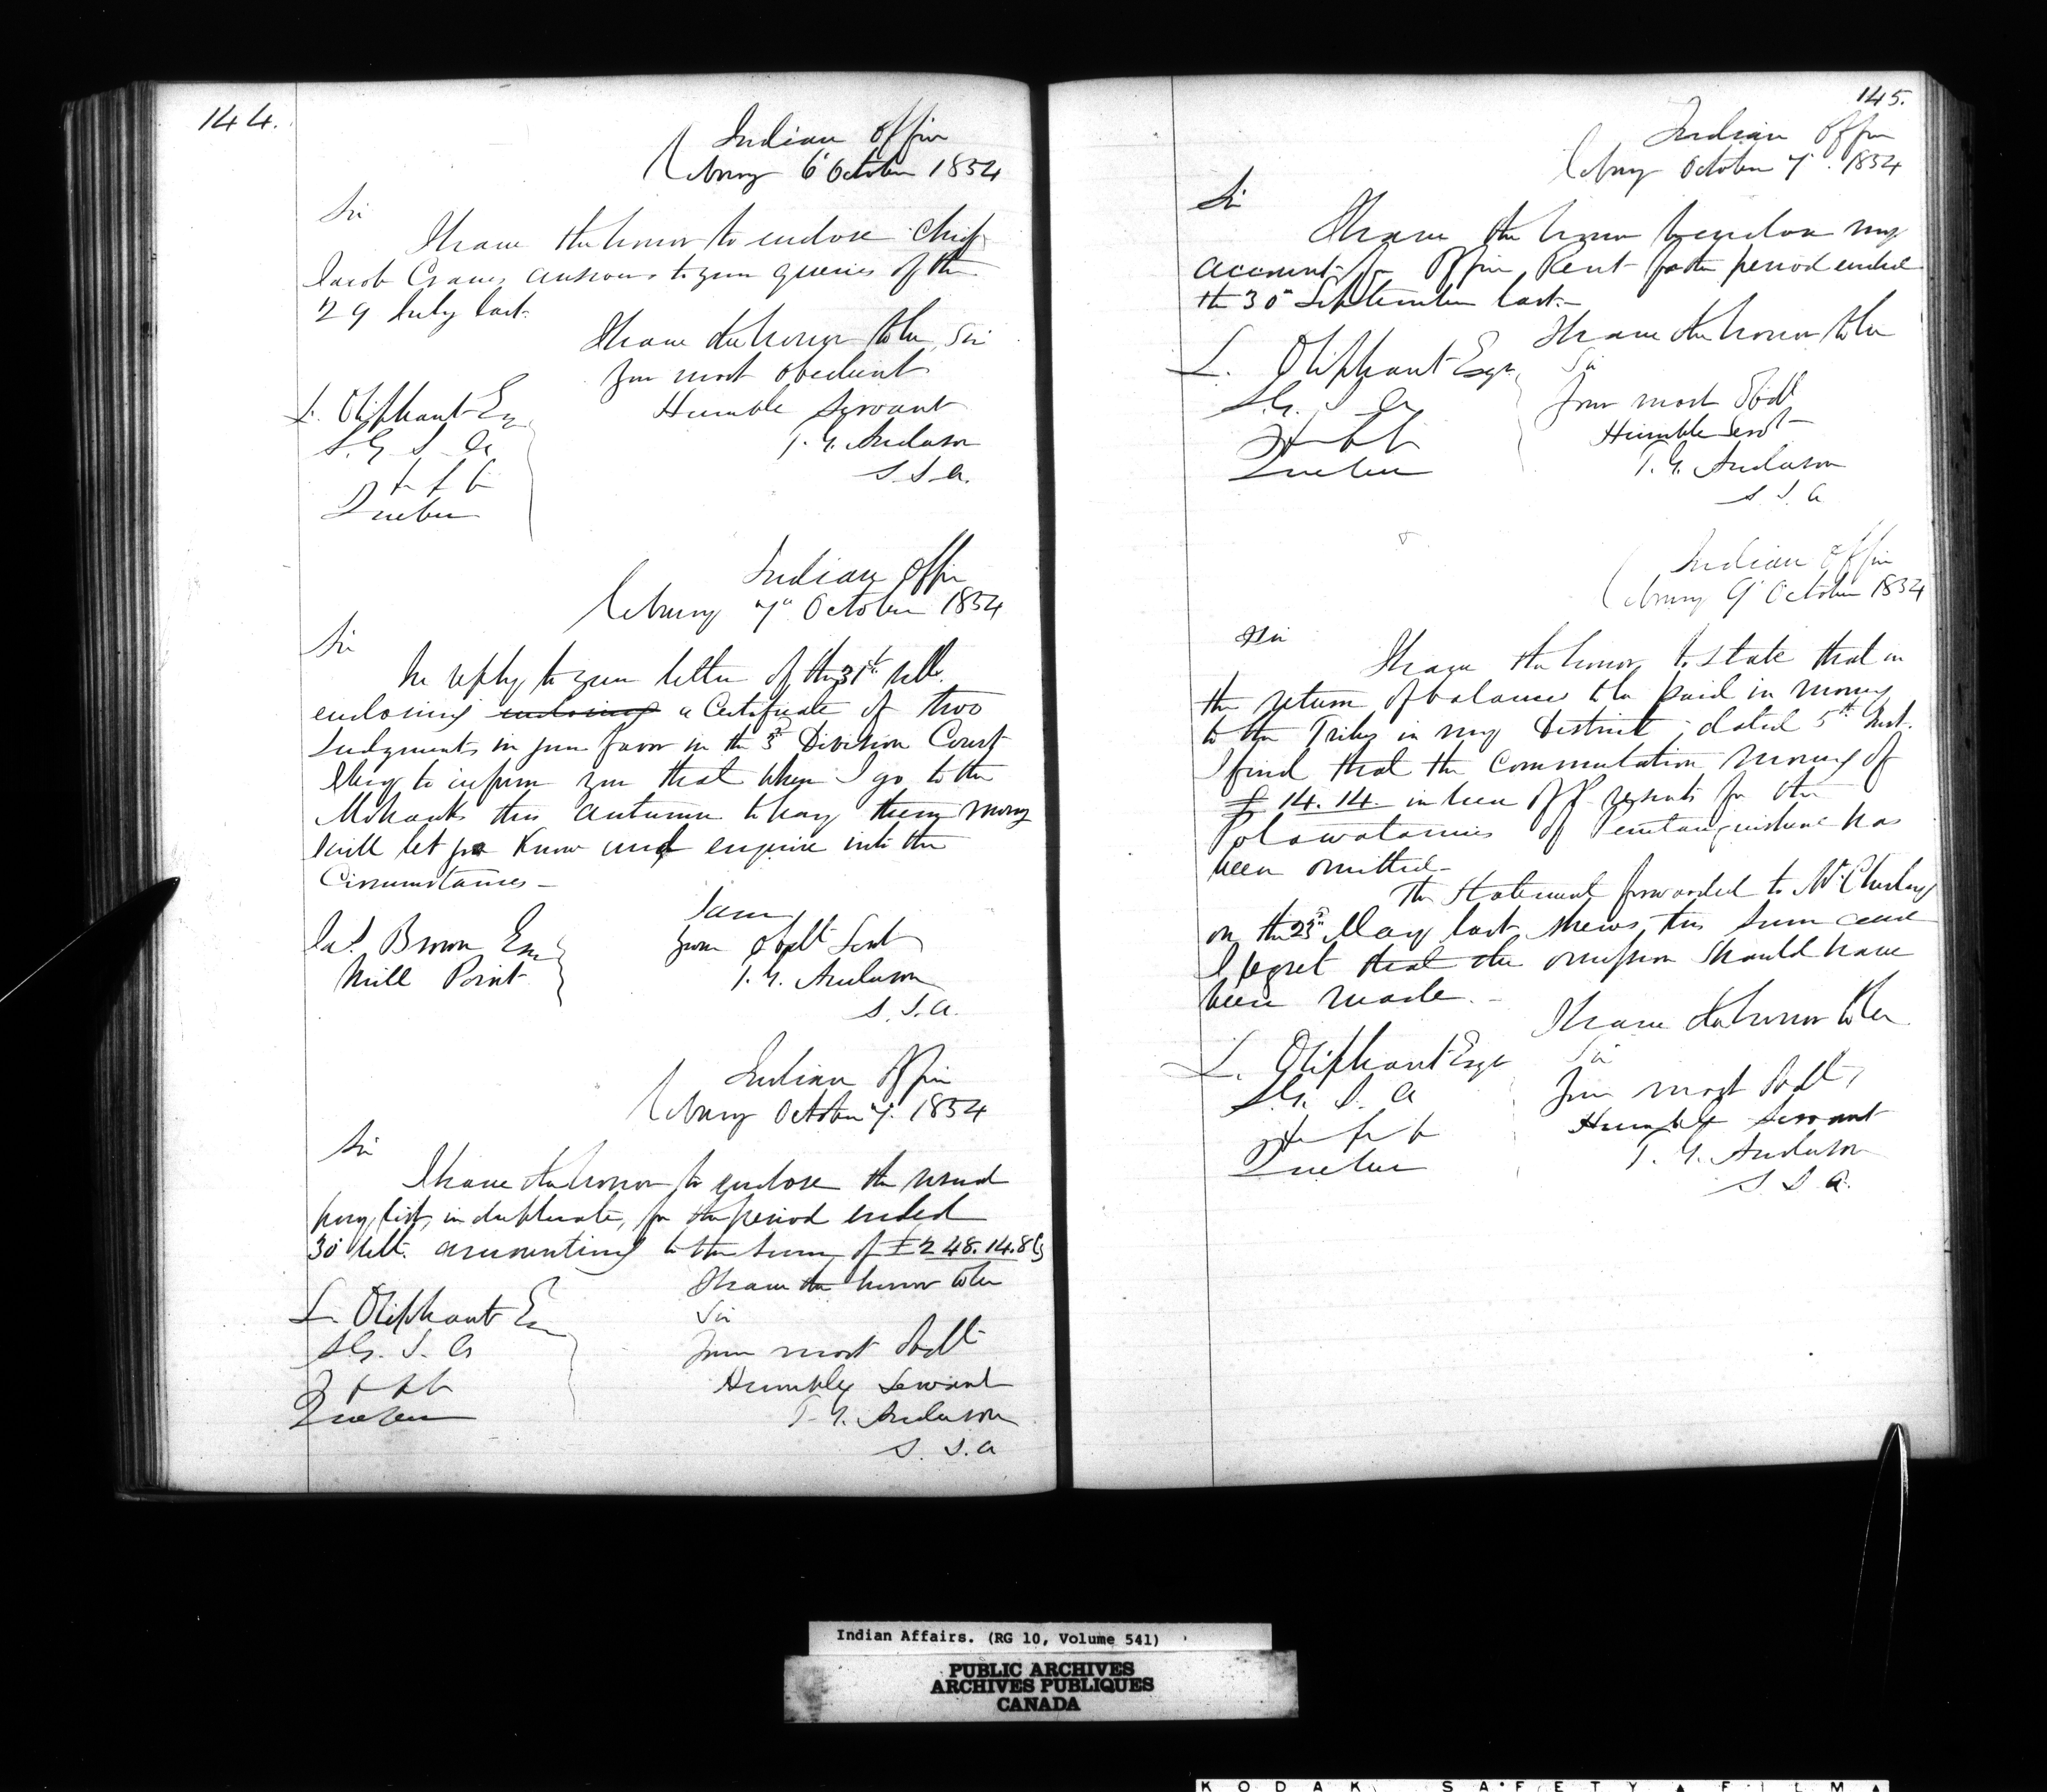 144.
Indian Office
Cobourg 6" October 1854
Sir
I have the honor to enclose Chief
Jacob Crane's answers to your queries of the
29 July last.
I have the honor to be, Sir
Your most obedient
Humble Servant
T. G. Anderson
S. I. A.
L. Oliphant Esq
S. G. I. A
Quebec
Indian Office
Cobourg 7" October 1854
Sir
In reply to your letter of the 31st ulto.
enclosing enclosing a Certificate of two
Judgments in your favor in the 3d Division Court
I beg to inform you that when I go to the
Mohawks this autumn to pay their money
I will let you know and enquire into the
Circumstances -
I am
Your obdt Servt
T. G. Anderson
S. I. A.
Jas. Brown Esq
Mill Point
Indian Office
Cobourg October 7". 1854
Sir
I have the honor to enclose the usual
pay list, in duplicate, for the period ended
30" ulto. amounting to the sum of £248.14.8 Cy
I have the honor to be
Sir
Your most obdt
Humble Servant
T. G. Anderson
S. I. A
L. Oliphant Esq
S. G. I. A
Quebec
145.
Indian Office
Cobourg October 7". 1854
Sir
I have the honor to enclose my
account for Office Rent for the period ended
the 30" September last -
I have the honor to be
Sir
Your most Obdt
Humble Servt
T. G. Anderson
S. I. A
L. Oliphant Esqr
S. G. I. A
Quebec
Indian Office
Cobourg 9" October 1854
Sir
I have the honor to state that in
the return of balances to be paid in money
to the Tribes in my District, dated 5th Inst.
I find that the Commutation Money of
£14.14. in lieu of presents for the
Potawatamies of Penetanguishene has
been omitted -
The Statement forwarded to Mr Chesley
on the 23d May last shews this sum and
I regret that the omission should have
been made. -
I have the honor to be
Sir
Your most Obdt
Humble Servant
T. G. Anderson
S. I. A.
L. Oliphant Esqr
S. G. I. A
Quebec
Indian Affairs. (RG 10, Volume 541)
PUBLIC ARCHIVES
ARCHIVES PUBLIQUES
CANADA
KODAK SAFETY FILM